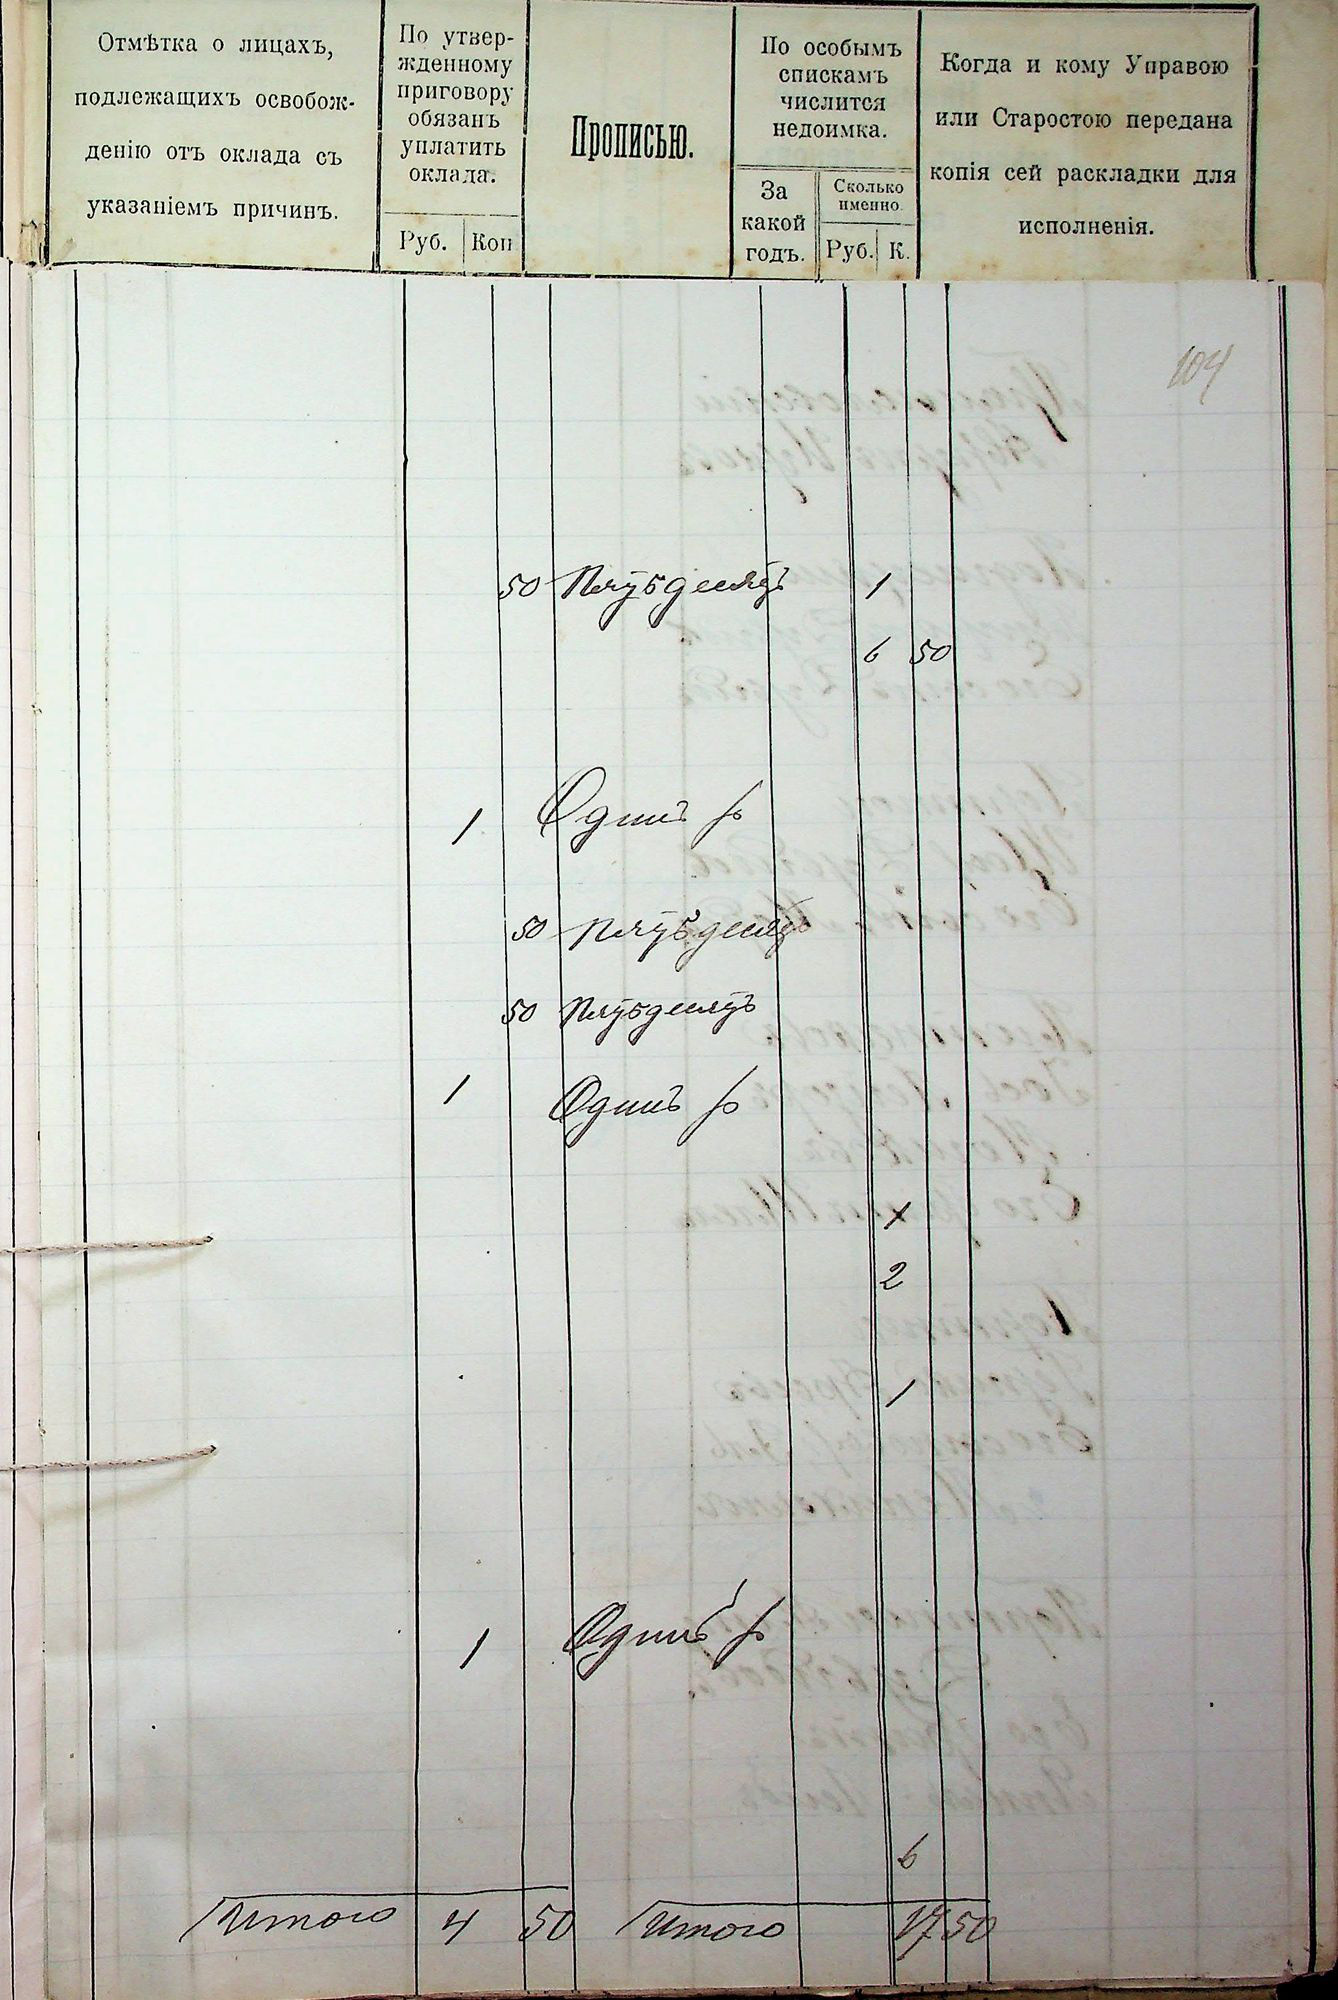 Отмѣтка о лицахъ,
подлежащихъ освобож-
денію отъ оклада съ
указаніемъ причинъ.
По утвер-
жденному
приговору
обязанъ
уплатить
оклада.
Руб. Коп
Прописью.
По особымъ
спискамъ
числится
недоимка.
За
какой
годъ.
Сколько
именно
Руб. К.
Когда и кому Управою
или Старостою передана
копія сей раскладки для
исполненія.
104
50 Пятьдесятъ 1
6 50
1 Одинъ р
50 Пятьдесятъ
50 Пятьдесятъ
1 Одинъ р
1
2
1
1 Одинъ р
6
Итого 4 50 Итого 17 50